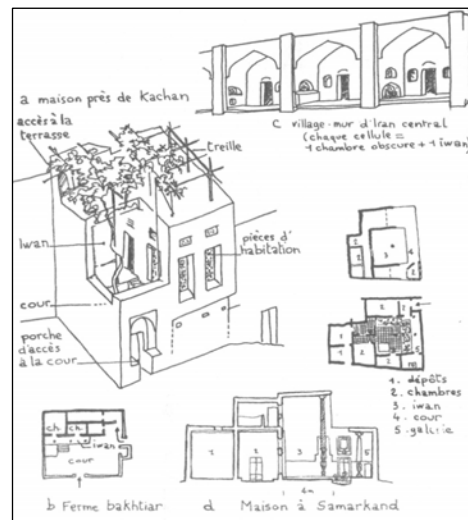 a maison près de Kachan
accès à la
terrasse
treille
Iwan
pièces d'
habitation
cour
porche
d'accès
à la cour
c village-mur d'Iran central
(chaque cellule =
1 chambre obscure + 1 iwan)
1. dépôts
2. chambres
3. iwan
4. cour
5. galerie
ch. ch.
iwan
cour
b Ferme bakhtiar
1 2 3 5
4m
d Maison à Samarkand